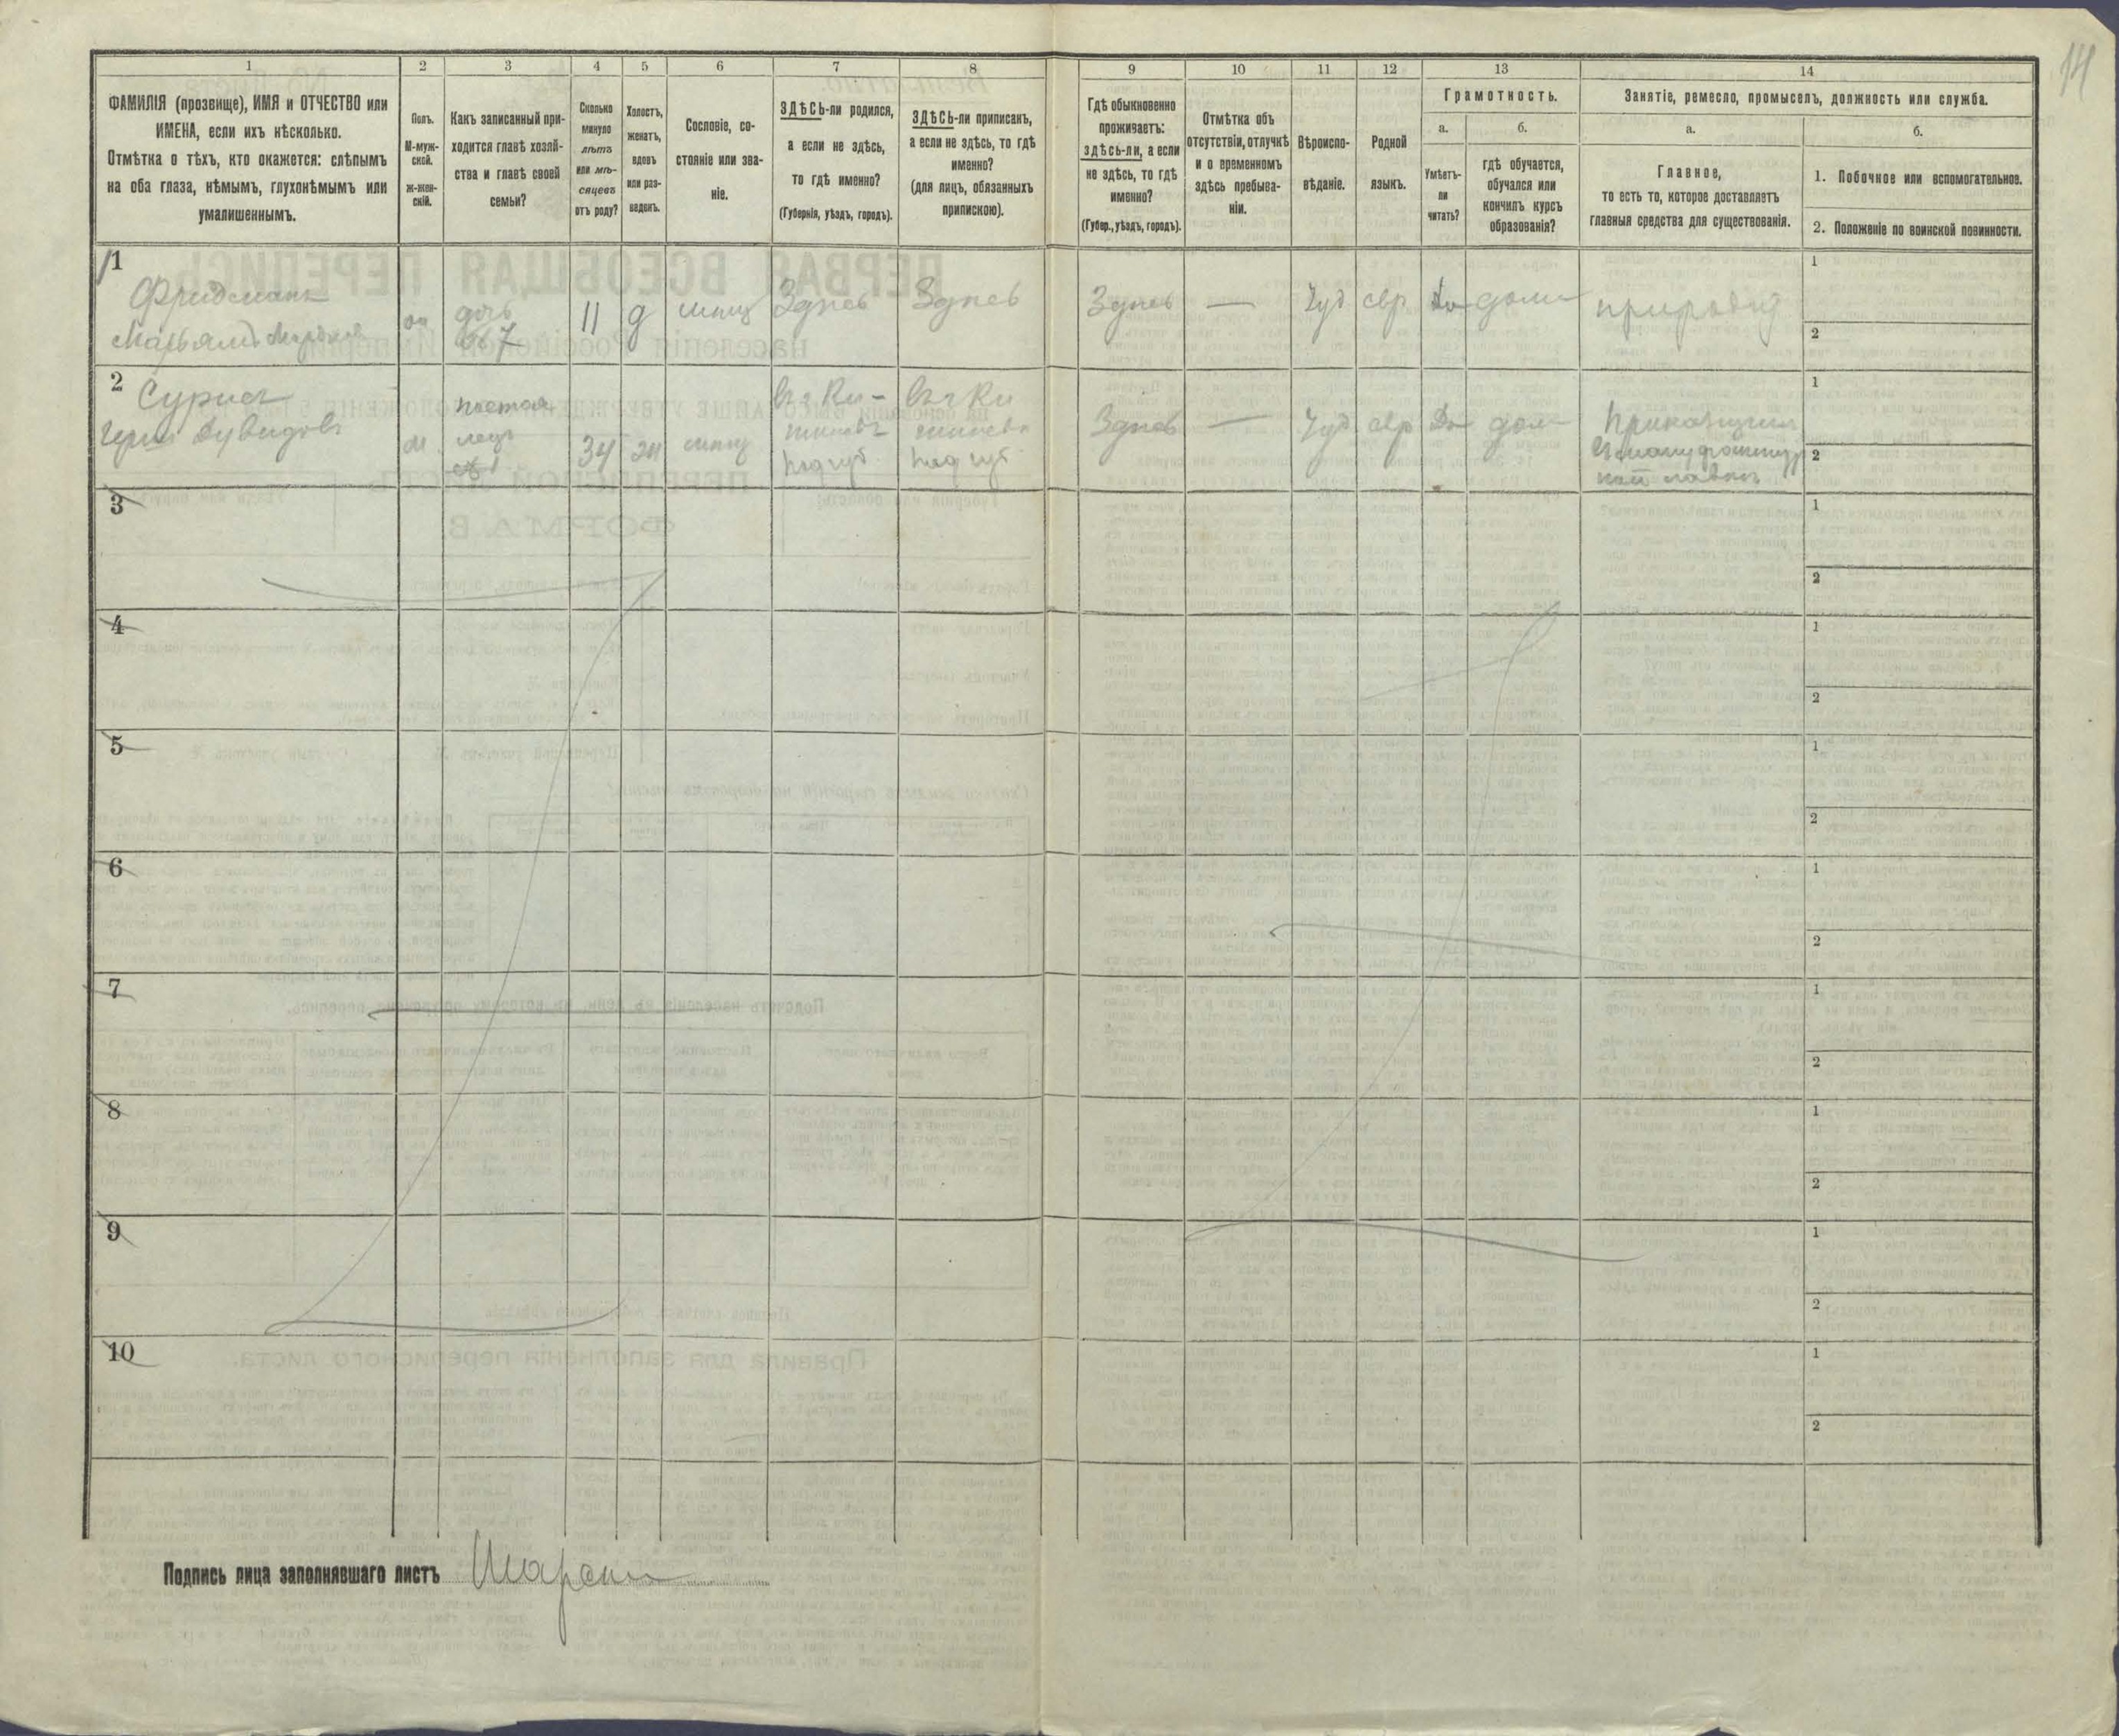 14
1
2
3
4
5
6
7
8
9
10
11
12
13
14
ФАМИЛІЯ (прозвище), ИМЯ и ОТЧЕСТВО или
ИМЕНА, если ихъ нѣсколько.
Отмѣтка о тѣхъ, кто окажется: слѣпымъ
на оба глаза, нѣмымъ, глухонѣмымъ или
умалишеннымъ.
Полъ.
М-муж-
ской.
Ж-жен-
скій.
Какъ записанный при-
ходится главѣ хозяй-
ства и главѣ своей
семьи?
Сколько
минуло
лѣтъ
или мѣ-
сяцевъ
отъ роду?
Холостъ,
женатъ,
вдовъ
или раз-
веденъ.
Сословіе, со-
стояніе или зва-
ніе.
ЗДѢСЬ-ли родился,
а если не здѣсь,
то гдѣ именно?
(Губернія, уѣздъ, городъ).
ЗДѢСЬ-ли приписанъ,
а если не здѣсь, то гдѣ
именно?
(для лицъ, обязанныхъ
припискою).
Гдѣ обыкновенно
проживаетъ:
здѣсь-ли, а если
не здѣсь, то гдѣ
именно?
(Губер., уѣздъ, городъ).
Отмѣтка объ
отсутствіи, отлучкѣ
и о временномъ
здѣсь пребыва-
ніи.
Вѣроиспо-
вѣданіе.
Родной
языкъ.
Грамотность.
а.
Умѣетъ-
ли
читать?
б.
гдѣ обучается,
обучался или
кончилъ курсъ
образованія?
Занятіе, ремесло, промыселъ, должность или служба.
а.
Главное,
то есть то, которое доставляетъ
главныя средства для существованія.
б.
1. Побочное или вспомогательное.
2. Положеніе по воинской повинности.
1
Фридманъ
Марьямъ
дочь
7
11
д
мѣщ
Здѣсь
Здѣсь
Здѣсь
—
Іуд
евр
Да
дома
при
1
2
2
Сурисъ
Дувидовъ
м
34
мѣщ
въ г Ки-
шиневѣ
въ г Ки
шиневѣ
Здѣсь
—
Іуд
евр
Да
дом
Приказчикъ
лавки
1
2
3
1
2
4
1
2
5
1
2
6
1
2
7
1
2
8
1
2
9
1
2
10
1
2
Подпись лица заполнявшаго листъ